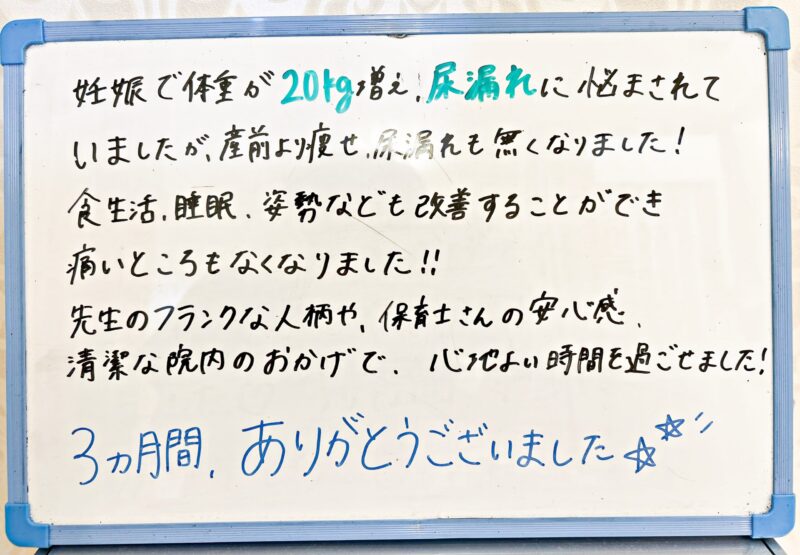 妊娠で体重が20kg増え、尿漏れに悩まされて
いましたが、産前より痩せ、尿漏れも無くなりました!
食生活、睡眠、姿勢なども改善することができ
痛いところもなくなりました!!
先生のフランクな人柄や、保育士さんの安心感、
清潔な院内のおかげで、心地よい時間を過ごせました!
3ヵ月間、ありがとうございました☆☆